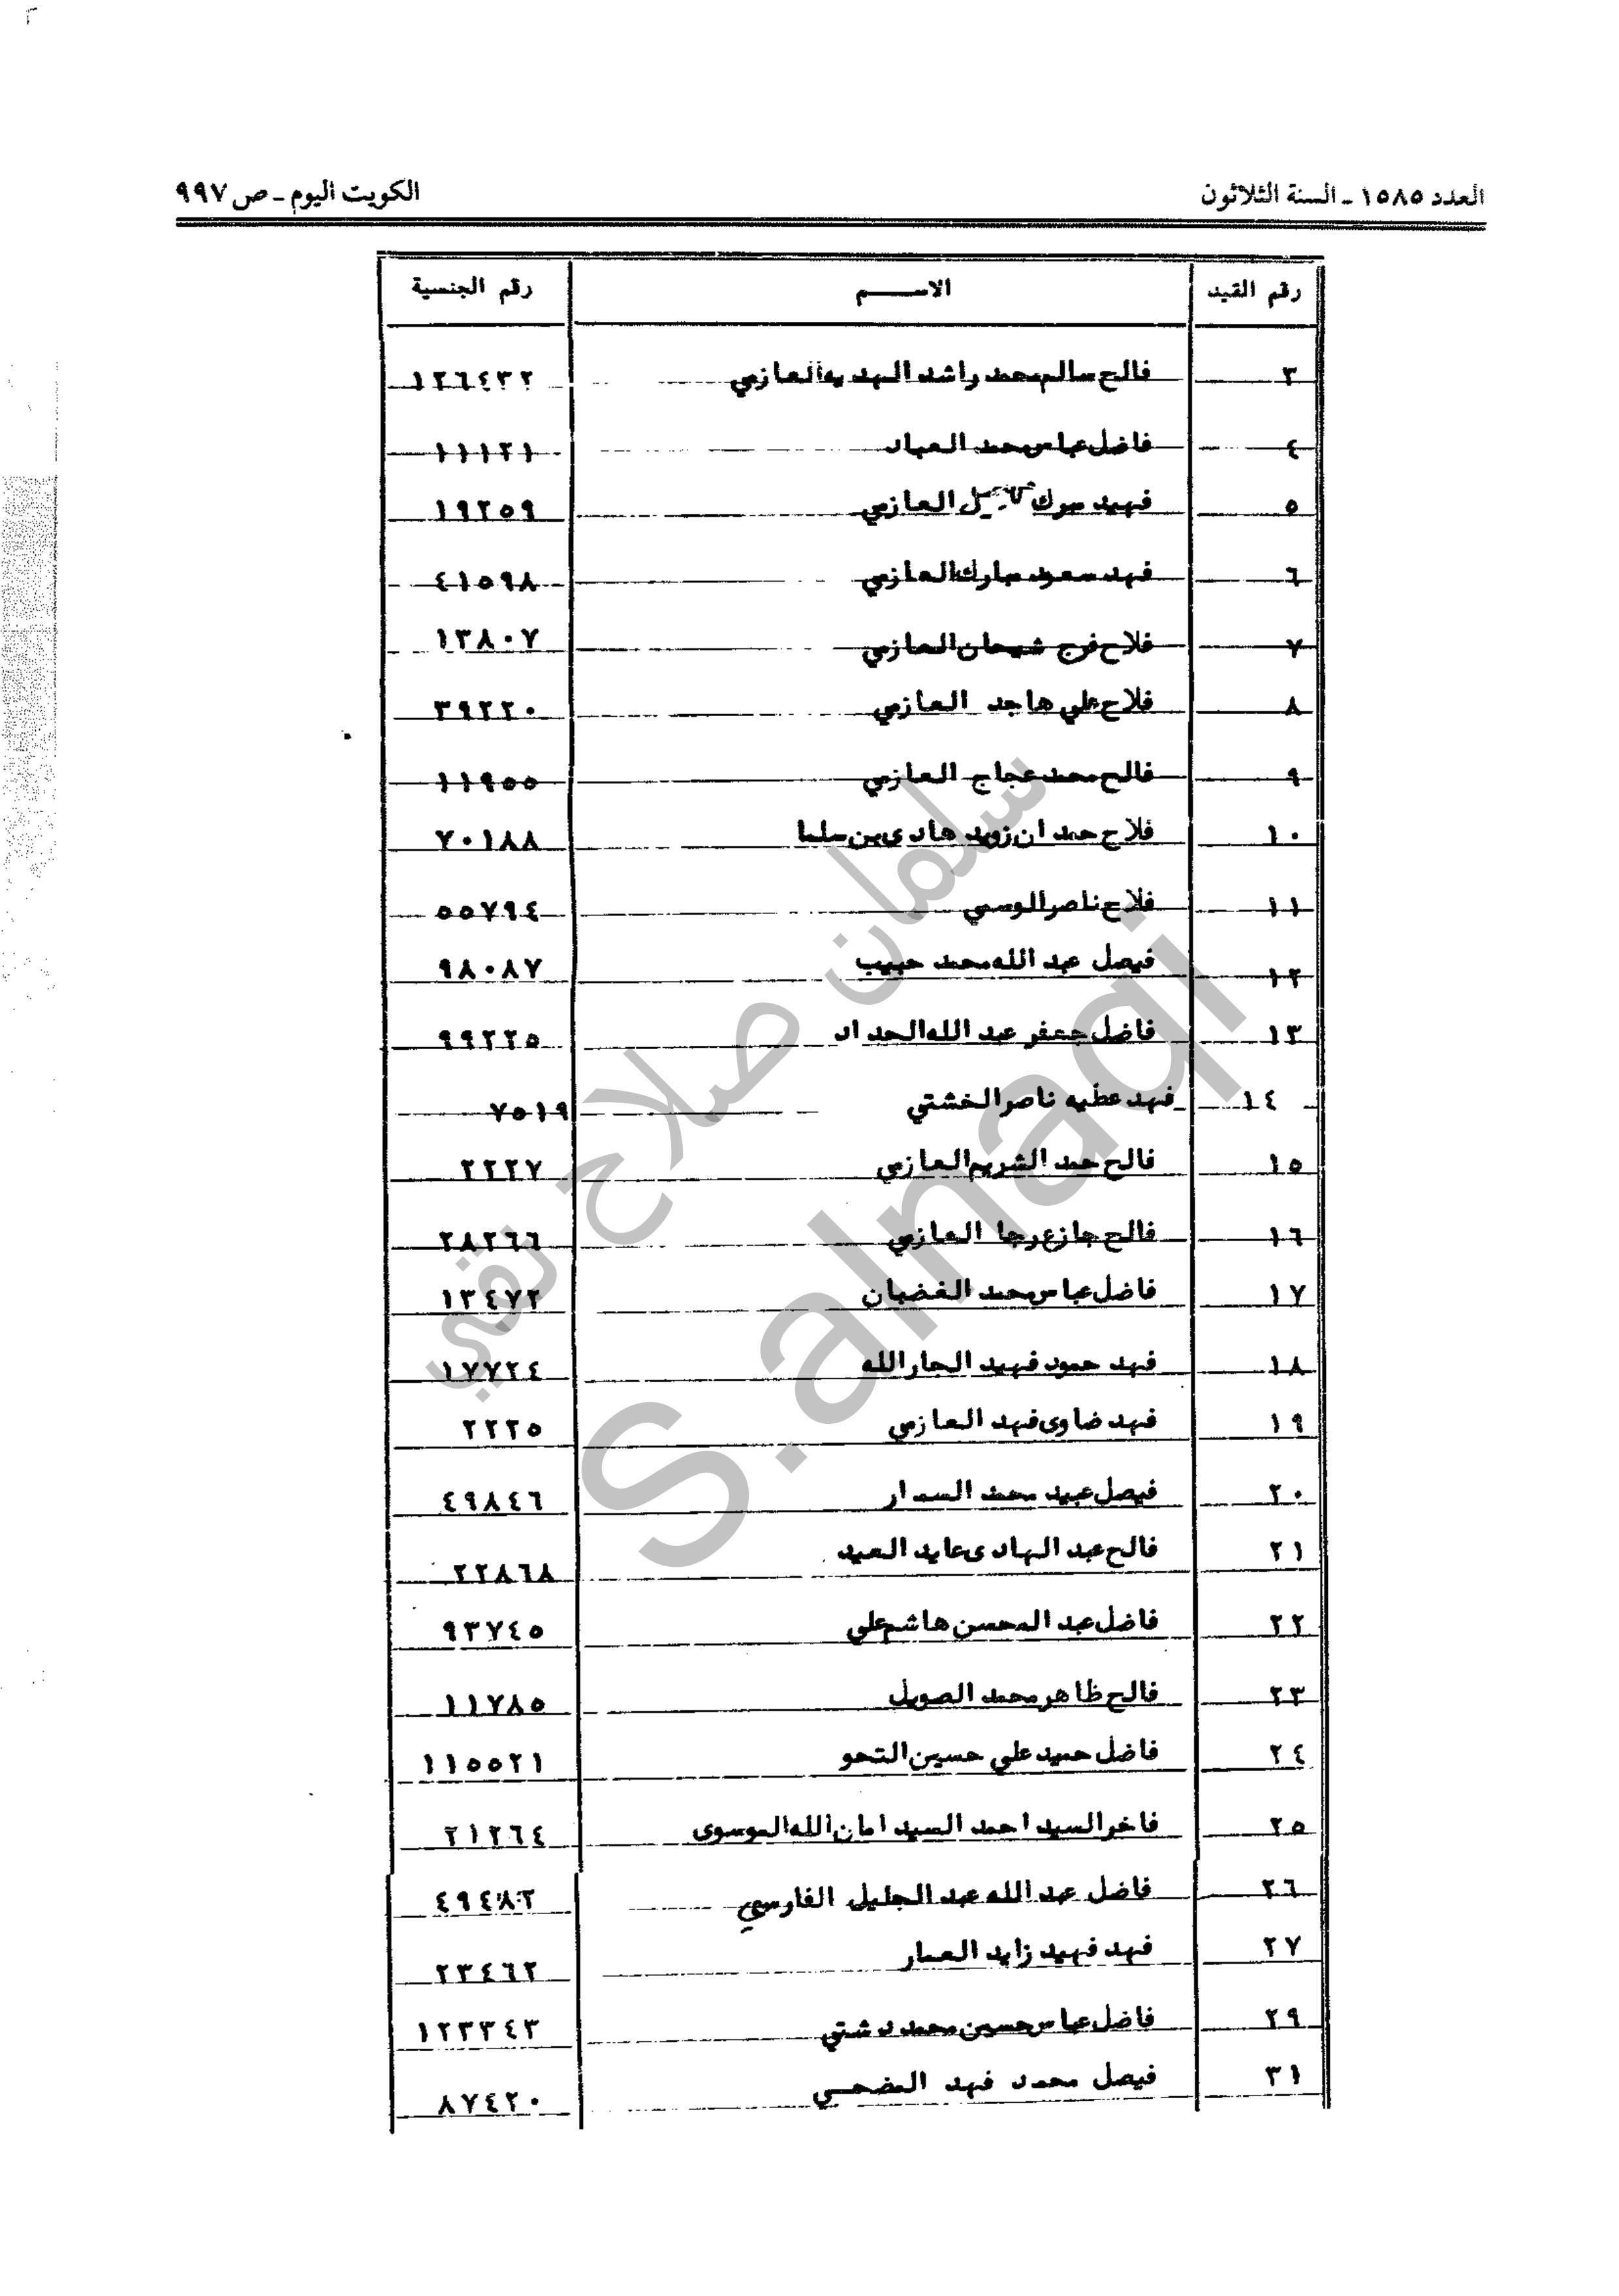 العدد ١٥٨٥ ـ السنة الثلاثون الكويت اليوم ـ ص ٩٩٧
رقم القيد الاسم رقم الجنسية
٣ فالح سالم محمد راشد الهديه العازمي ١٢٦٤٣٢
٤ فاضل عباس محمد العباد ١١١٢١
٥ فهيد مبرك العازمي ١٩٢٥٩
٦ فهد سعود مبارك العازمي ٤١٥٩٨
٧ فلاح فرج شيحان العازمي ١٣٨٠٧
٨ فلاح علي هاجد العازمي ٣٩٢٢٠
٩ فالح محمد عجاج العازمي ١١٩٥٥
١٠ فلاح حمدان زويد هادى بن سلما ٧٠١٨٨
١١ فلاح ناصر الوسمي ٥٥٧٩٤
١٢ فيصل عبد الله محمد حبيب ٩٨٠٨٧
١٣ فاضل جعفر عبد الله الحداد ٩٩٢٢٥
١٤ فهد عطيه ناصر الخشتي ٧٥١٩
١٥ فالح حمد الشريم العازمي ٢٢٢٧
١٦ فالح جازع رجا العازمي ٢٨٢٦٦
١٧ فاضل عباس محمد الغضبان ١٣٤٧٢
١٨ فهد حمود فهيد الجارالله ١٧٧٢٤
١٩ فهد ضاوى فهد العازمي ٢٢٢٥
٢٠ فيصل عبيد محمد السمار ٤٩٨٤٦
٢١ فالح عبد الهادى عايد العيد ٢٢٨٦٨
٢٢ فاضل عبد المحسن هاشم علي ٩٣٧٤٥
٢٣ فالح ظاهر محمد الصويل ١١٧٨٥
٢٤ فاضل حميد علي حسين التحو ١١٥٥٢١
٢٥ فاخر السيد احمد السيد امان الله الموسوى ٢١٢٦٤
٢٦ فاضل عبد الله عبد الجليل الفارسي ٤٩٤٨٢
٢٧ فهد فهيد زايد العمار ٢٣٤٦٢
٢٩ فاضل عباس حسين محمد دشتي ١٢٣٣٤٣
٣١ فيصل محمد فهد المضحي ٨٧٤٢٠
سلمان صلاح نقي
S.alnaqi